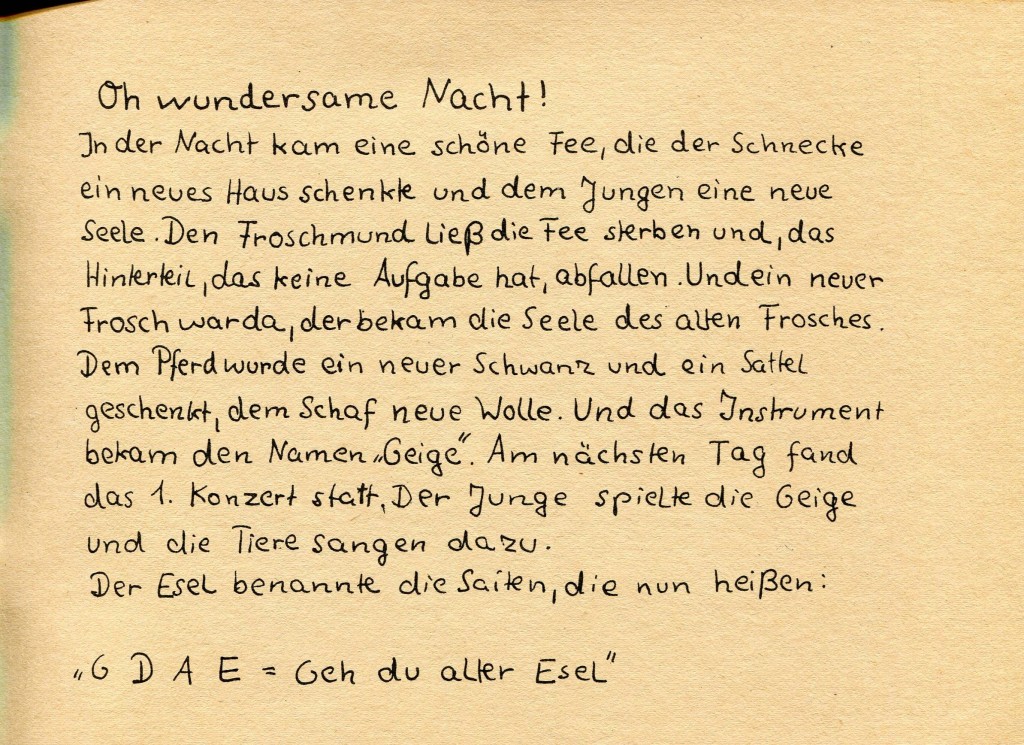 Oh wundersame Nacht!
In der Nacht kam eine schöne Fee, die der Schnecke
ein neues Haus schenkte und dem Jungen eine neue
Seele. Den Froschmund ließ die Fee sterben und, das
Hinterteil, das keine Aufgabe hat, abfallen. Und ein neuer
Frosch war da, der bekam die Seele des alten Frosches.
Dem Pferd wurde ein neuer Schwanz und ein Sattel
geschenkt, dem Schaf neue Wolle. Und das Instrument
bekam den Namen „Geige“. Am nächsten Tag fand
das 1. Konzert statt. Der Junge spielte die Geige
und die Tiere sangen dazu.
Der Esel benannte die Saiten, die nun heißen:
„G D A E = Geh du alter Esel“